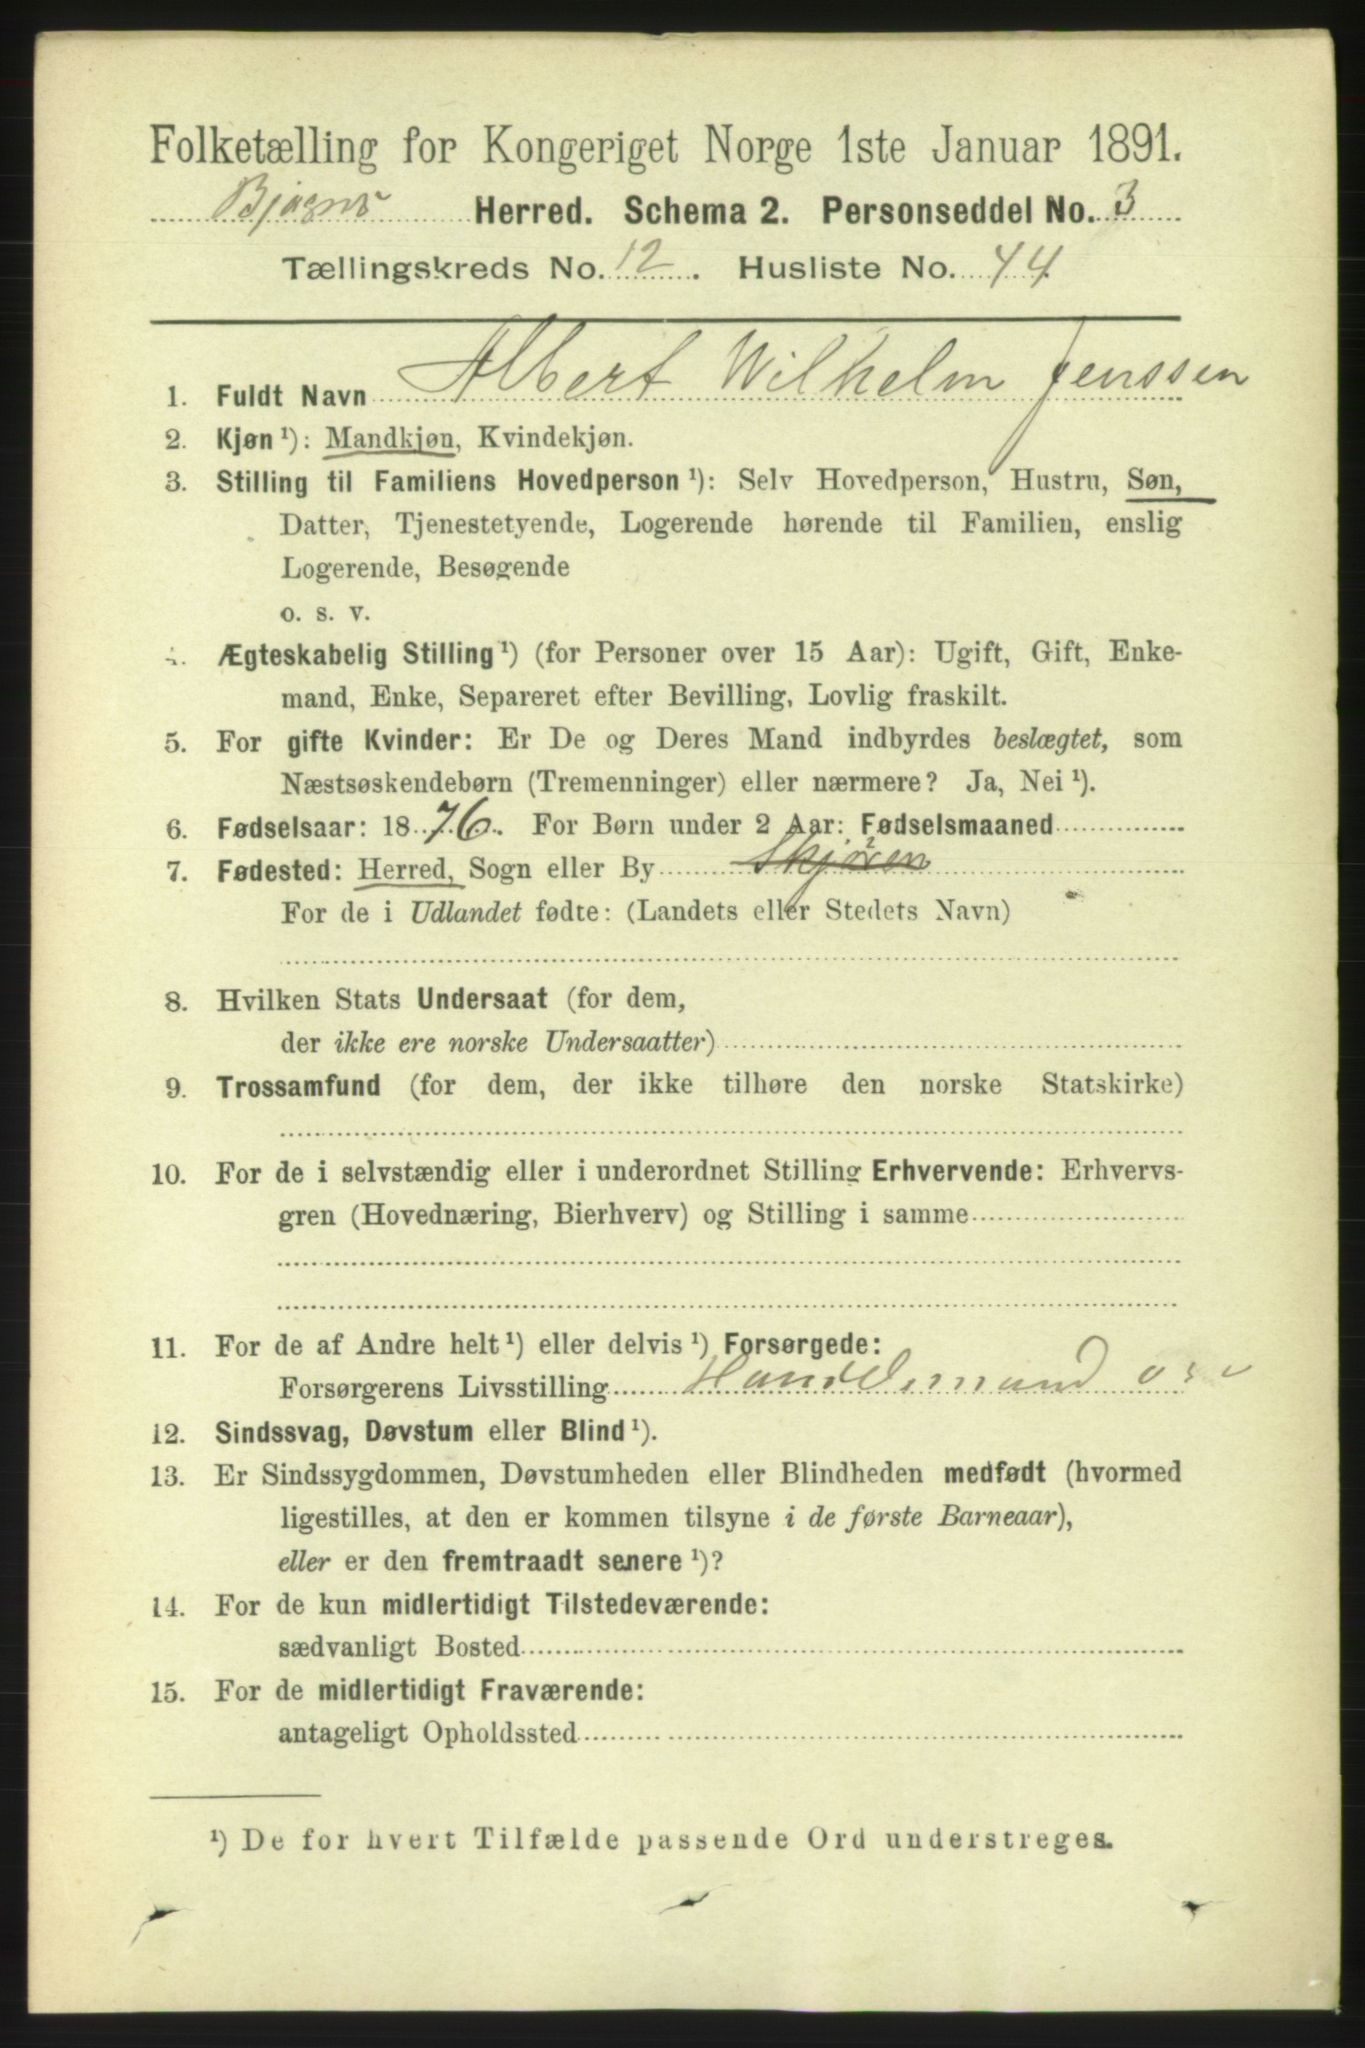 Folketælling for Kongeriget Norge 1ste Januar 1891.
Bjørnør Herred. Schema 2. Personseddel No. 3
Tællingskreds No. 12. Husliste No. 44
1. Fuldt Navn Albert Wilhelm Jenssen
2. Kjøn ¹): Mandkjøn, Kvindekjøn.
3. Stilling til Familiens Hovedperson ¹): Selv Hovedperson, Hustru, Søn,
Datter, Tjenestetyende, Logerende hørende til Familien, enslig
Logerende, Besøgende
o. s. v.
4. Ægteskabelig Stilling ¹) (for Personer over 15 Aar): Ugift, Gift, Enke-
mand, Enke, Separeret efter Bevilling, Lovlig fraskilt.
5. For gifte Kvinder: Er De og Deres Mand indbyrdes beslægtet, som
Næstsøskendebørn (Tremenninger) eller nærmere? Ja, Nei ¹).
6. Fødselsaar: 1876. For Børn under 2 Aar: Fødselsmaaned
7. Fødested: Herred, Sogn eller By Skjøren
For de i Udlandet fødte: (Landets eller Stedets Navn)
8. Hvilken Stats Undersaat (for dem,
der ikke ere norske Undersaatter)
9. Trossamfund (for dem, der ikke tilhøre den norske Statskirke)
10. For de i selvstændig eller i underordnet Stilling Erhvervende: Erhvervs-
gren (Hovednæring, Bierhverv) og Stilling i samme
11. For de af Andre helt ¹) eller delvis ¹) Forsørgede:
Forsørgerens Livsstilling Handelsmand
12. Sindssvag, Døvstum eller Blind ¹).
13. Er Sindssygdommen, Døvstumheden eller Blindheden medfødt (hvormed
ligestilles, at den er kommen tilsyne i de første Barneaar),
eller er den fremtraadt senere ¹)?
14. For de kun midlertidigt Tilstedeværende:
sædvanligt Bosted
15. For de midlertidigt Fraværende:
antageligt Opholdssted
¹) De for hvert Tilfælde passende Ord understreges.